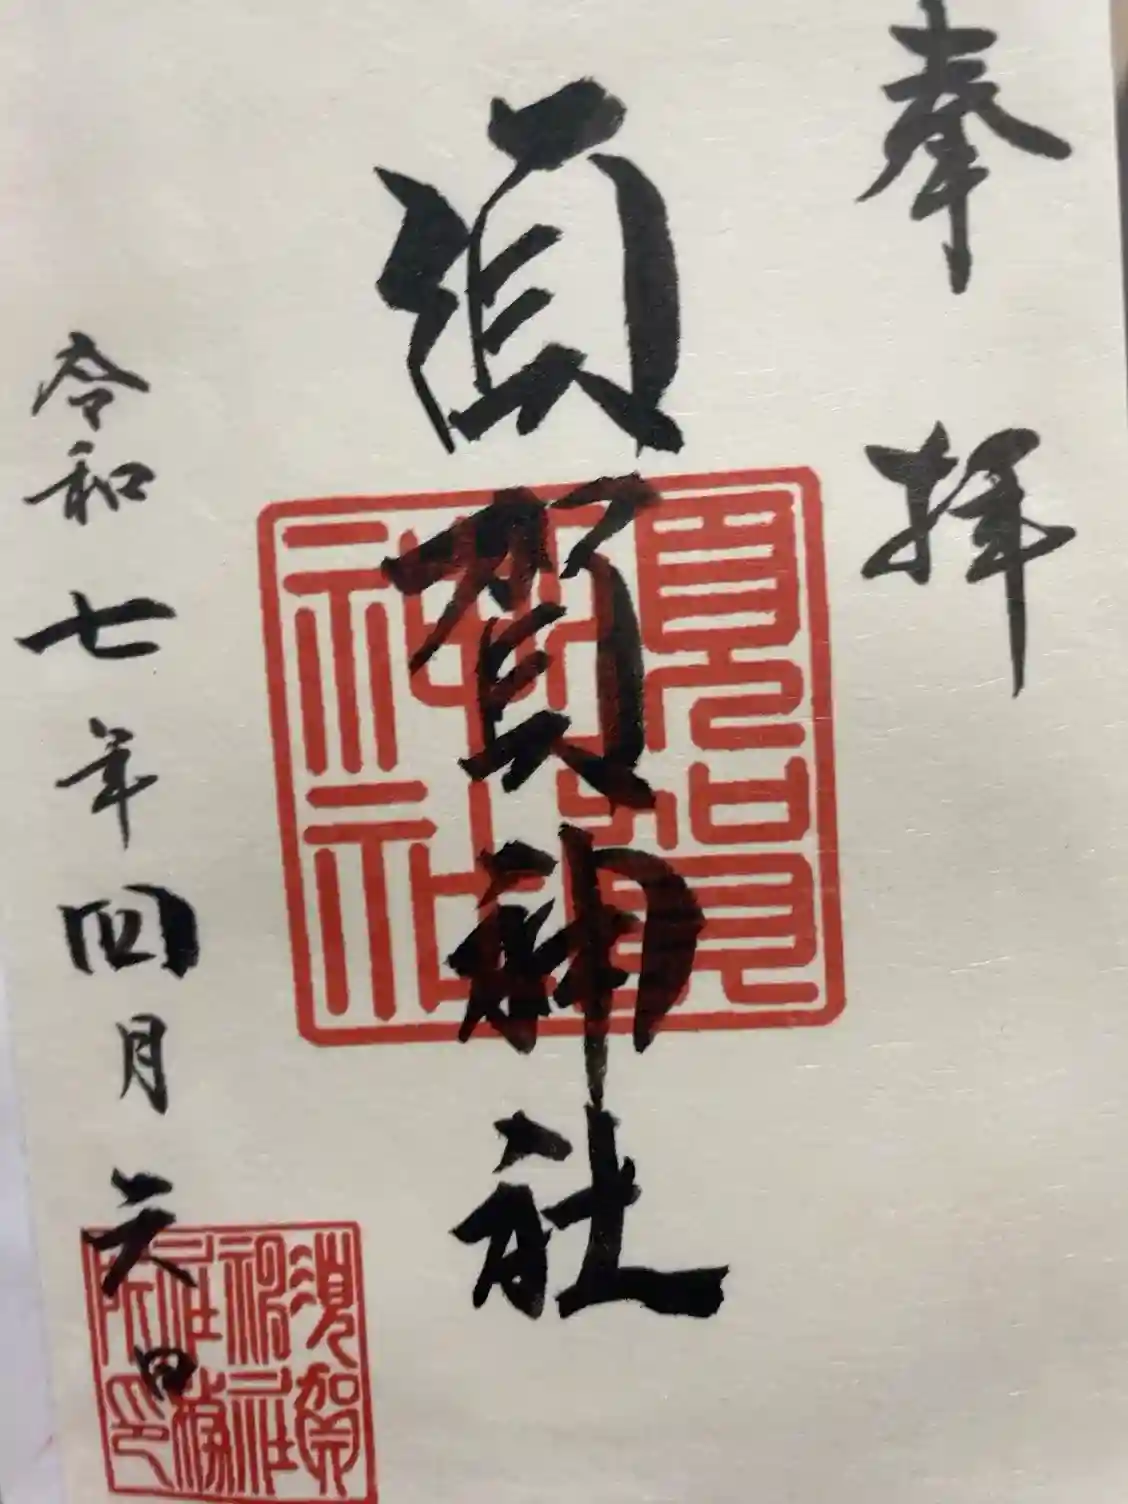 奉拝
須賀神社
令和七年四月六日
須賀神社
須賀神社社務所印